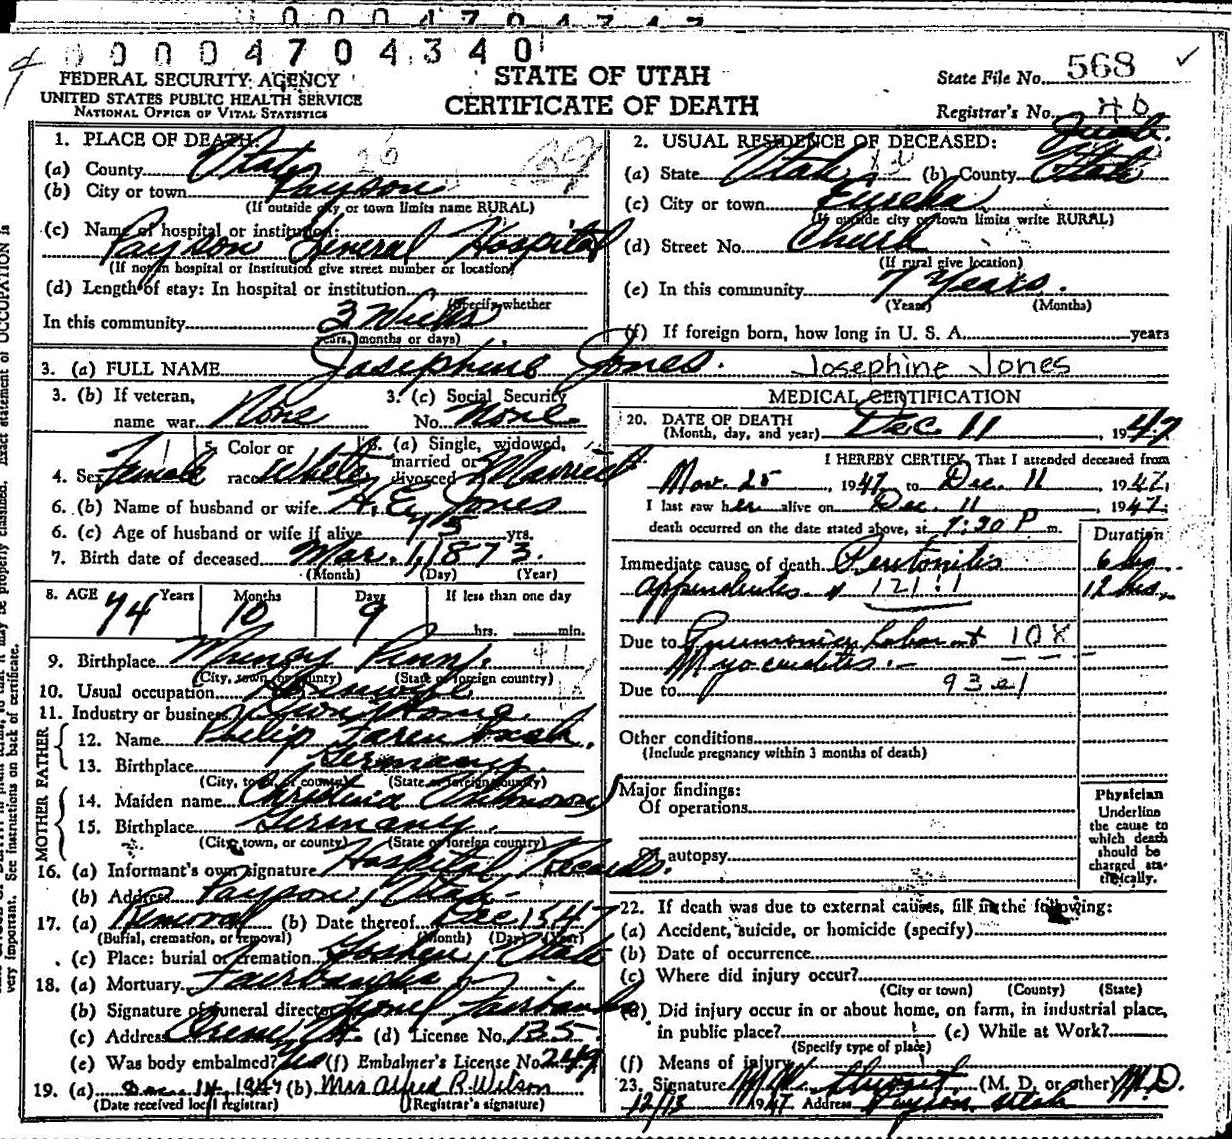 0 0 0 0 4 7 0 4 3 4 0
FEDERAL SECURITY AGENCY
UNITED STATES PUBLIC HEALTH SERVICE
NATIONAL OFFICE OF VITAL STATISTICS
STATE OF UTAH
CERTIFICATE OF DEATH
State File No. 568
Registrar's No.
1. PLACE OF DEATH:
(a) County Utah
(b) City or town Payson
(If outside city or town limits name RURAL)
(c) Name of hospital or institution:
Payson General Hospital
(If not in hospital or institution give street number or location)
(d) Length of stay: In hospital or institution
(Specify whether
In this community 3 Weeks
years, months or days)
2. USUAL RESIDENCE OF DECEASED:
Juab
(a) State Utah (b) County Utah
(c) City or town Eureka
(If outside city or town limits write RURAL)
(d) Street No. Church
(If rural give location)
(e) In this community 7 Years.
(Years) (Months)
(f) If foreign born, how long in U. S. A. years
3. (a) FULL NAME Josephine Jones. Josephine Jones
3. (b) If veteran, name war None
3. (c) Social Security No. None
4. Sex Female 5. Color or race White 6. (a) Single, widowed, married or divorced Married
6. (b) Name of husband or wife H. E. Jones
6. (c) Age of husband or wife if alive 75 yrs.
7. Birth date of deceased Mar. 1, 1873.
(Month) (Day) (Year)
8. AGE 74 Years 10 Months 9 Days If less than one day
hrs. min.
9. Birthplace Muncy Penn.
(City, town, or county) (State or foreign country)
10. Usual occupation Housewife
11. Industry or business Own Home.
FATHER
12. Name Philip
13. Birthplace Germany.
(City, town, or county) (State or foreign country)
MOTHER
14. Maiden name Christina Unknown
15. Birthplace Germany.
(City, town, or county) (State or foreign country)
16. (a) Informant's own signature Hospital Records.
(b) Address Payson, Utah
17. (a) Removal (b) Date thereof Dec 15 47
(Burial, cremation, or removal) (Month) (Day) (Year)
(c) Place: burial or cremation Goshen, Utah
18. (a) Mortuary Fairbanks
(b) Signature of funeral director Lionel Fairbanks
(c) Address Orem, Ut. (d) License No. 135
(e) Was body embalmed? Yes (f) Embalmer's License No. 249
19. (a) Dec. 14, 1947 (b) Mrs Alfred R. Wilson
(Date received local registrar) (Registrar's signature)
MEDICAL CERTIFICATION
20. DATE OF DEATH
(Month, day, and year) Dec 11, 1947
I HEREBY CERTIFY, That I attended deceased from
Nov. 25, 1947 to Dec. 11, 1947.
I last saw her alive on Dec. 11 1947.
death occurred on the date stated above, at 7:30 P m.
Duration
Immediate cause of death Peritonitis
appendicitis 121 ! 1 12 hrs.
Due to Pneumonia Lobar 108
Myocarditis.
Due to 93
Other conditions
(Include pregnancy within 3 months of death)
Major findings:
Of operations
Of autopsy
Physician
Underline
the cause to
which death
should be
charged sta-
tistically.
22. If death was due to external causes, fill in the following:
(a) Accident, suicide, or homicide (specify)
(b) Date of occurrence
(c) Where did injury occur?
(City or town) (County) (State)
(d) Did injury occur in or about home, on farm, in industrial place,
in public place? (e) While at Work?
(Specify type of place)
(f) Means of injury
23. Signature (M. D. or other) M.D.
12/13 1947 Address Payson, Utah
very important. See instructions on back of certificate.
it may be properly classified. Exact statement of OCCUPATION is